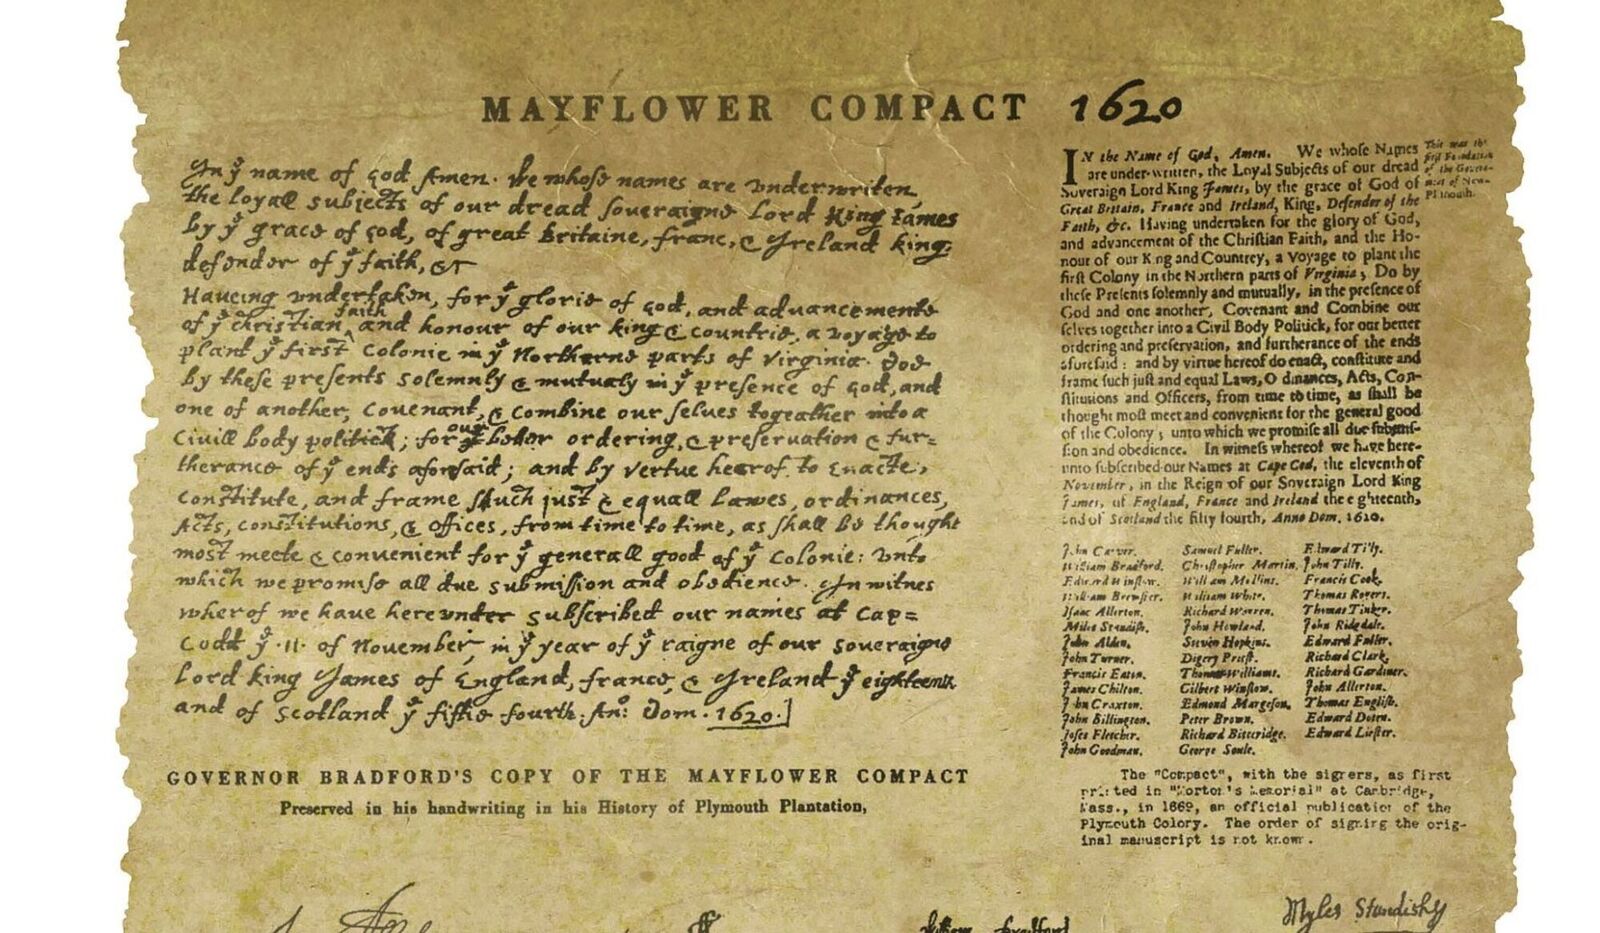 MAYFLOWER COMPACT 1620
In yͤ name of god Amen. We whose names are underwriten,
the loyall subjects of our dread soveraigne Lord King James
by yͤ grace of god, of great Britaine, franc, & Ireland king,
defender of yͤ faith, &c
Haveing undertaken, for yͤ glorie of god, and advancemente
of yͤ christian faith and honour of our king & countrie, a voyage to
plant yͤ first colonie in yͤ Northerne parts of Virginia. Doe
by these presents solemnly & mutualy in yͤ presence of god, and
one of another, covenant, & combine our selves togeather into a
Civill body politick; for our better ordering, & preservation & fur=
therance of yͤ ends aforesaid; and by vertue hearof to enacte,
constitute, and frame such just & equall lawes, ordinances,
Acts, constitutions, & offices, from time to time, as shall be thought
most meete & convenient for yͤ generall good of yͤ Colonie: unto
which we promise all due submission and obedience. In witnes
wherof we have hereunder subscribed our names at Cap=
Codd yͤ .11. of November, in yͤ year of yͤ raigne of our soveraigne
Lord king James of England, france, & Ireland yͤ eighteenth
and of Scotland yͤ fiftie fourth. An: Dom. 1620.]
GOVERNOR BRADFORD'S COPY OF THE MAYFLOWER COMPACT
Preserved in his handwriting in his History of Plymouth Plantation,
IN the Name of God, Amen. We whose Names
are under-written, the Loyal Subjects of our dread
Soveraign Lord King James, by the grace of God of
Great Britain, France and Ireland, King, Defender of the
Faith, &c. Having undertaken for the glory of God,
and advancement of the Christian Faith, and the Ho-
nour of our King and Countrey, a Voyage to plant the
first Colony in the Northern parts of Virginia; Do by
these Presents solemnly and mutually, in the presence of
God and one another, Covenant and Combine our
selves together into a Civil Body Politick, for our better
ordering and preservation, and furtherance of the ends
aforesaid: and by virtue hereof do enact, constitute and
frame such just and equal Laws, Ordinances, Acts, Con-
stitutions and Officers, from time to time, as shall be
thought most meet and convenient for the general good
of the Colony; unto which we promise all due submis-
sion and obedience. In witness whereof we have here-
unto subscribed our Names at Cape Cod, the eleventh of
November, in the Reign of our Soveraign Lord King
James, of England, France and Ireland the eighteenth,
and of Scotland the fifty fourth, Anno Dom. 1620.
This was the
first Foundation
of the Govern-
ment of New-
Plimouth.
John Carver. Samuel Fuller. Edward Tilly.
William Bradford. Christopher Martin. John Tilly.
Edward Winslow. William Mullins. Francis Cook.
William Brewster. William White. Thomas Rogers.
Isaac Allerton. Richard Warren. Thomas Tinker.
Miles Standish. John Howland. John Ridgdale.
John Alden. Steven Hopkins. Edward Fuller.
John Turner. Digery Priest. Richard Clark.
Francis Eaton. Thomas Williams. Richard Gardiner.
James Chilton. Gilbert Winslow. John Allerton.
John Craxton. Edmond Margeson. Thomas English.
John Billington. Peter Brown. Edward Doten.
Joses Fletcher. Richard Bitteridge. Edward Liester.
John Goodman. George Soule.
The "Compact", with the signers, as first
printed in "Morton's Memorial" at Cambridge,
Mass., in 1669, an official publication of the
Plymouth Colony. The order of signing the orig-
inal manuscript is not known.
Myles Standish